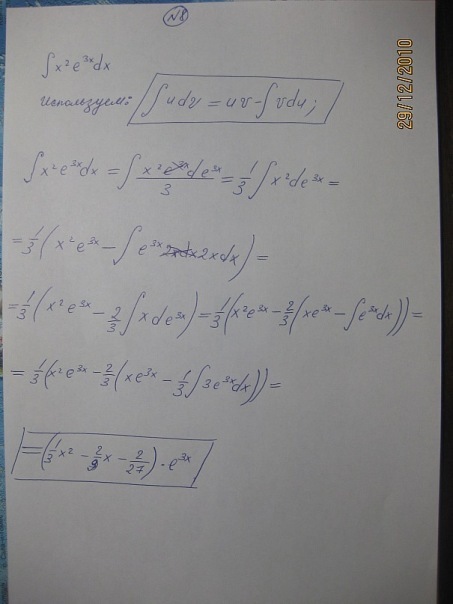 №8
∫x²e³ˣdx
Используем: ∫udv = uv - ∫vdu;
∫x²e³ˣdx = ∫x²de³ˣ/3 = 1/3 ∫x²de³ˣ =
= 1/3 (x²e³ˣ - ∫e³ˣ 2xdx) =
= 1/3 (x²e³ˣ - 2/3 ∫xde³ˣ) = 1/3 (x²e³ˣ - 2/3 (xe³ˣ - ∫e³ˣdx)) =
= 1/3 (x²e³ˣ - 2/3 (xe³ˣ - 1/3 ∫3e³ˣdx)) =
= (1/3 x² - 2/9 x - 2/27) · e³ˣ
29/12/2010